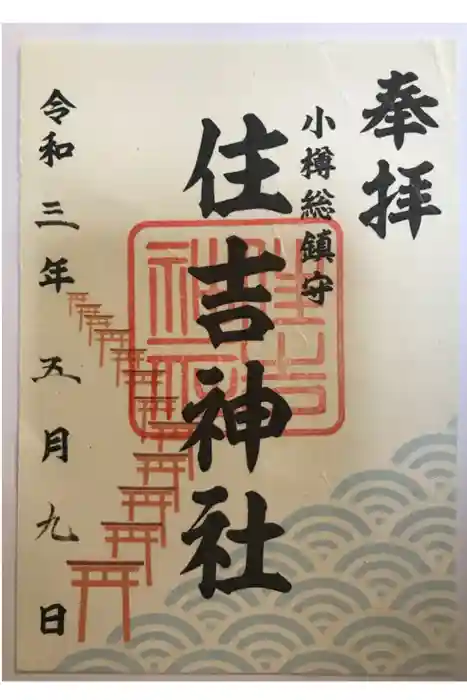 奉拝
小樽総鎮守
住吉神社
住吉神社
令和三年五月九日